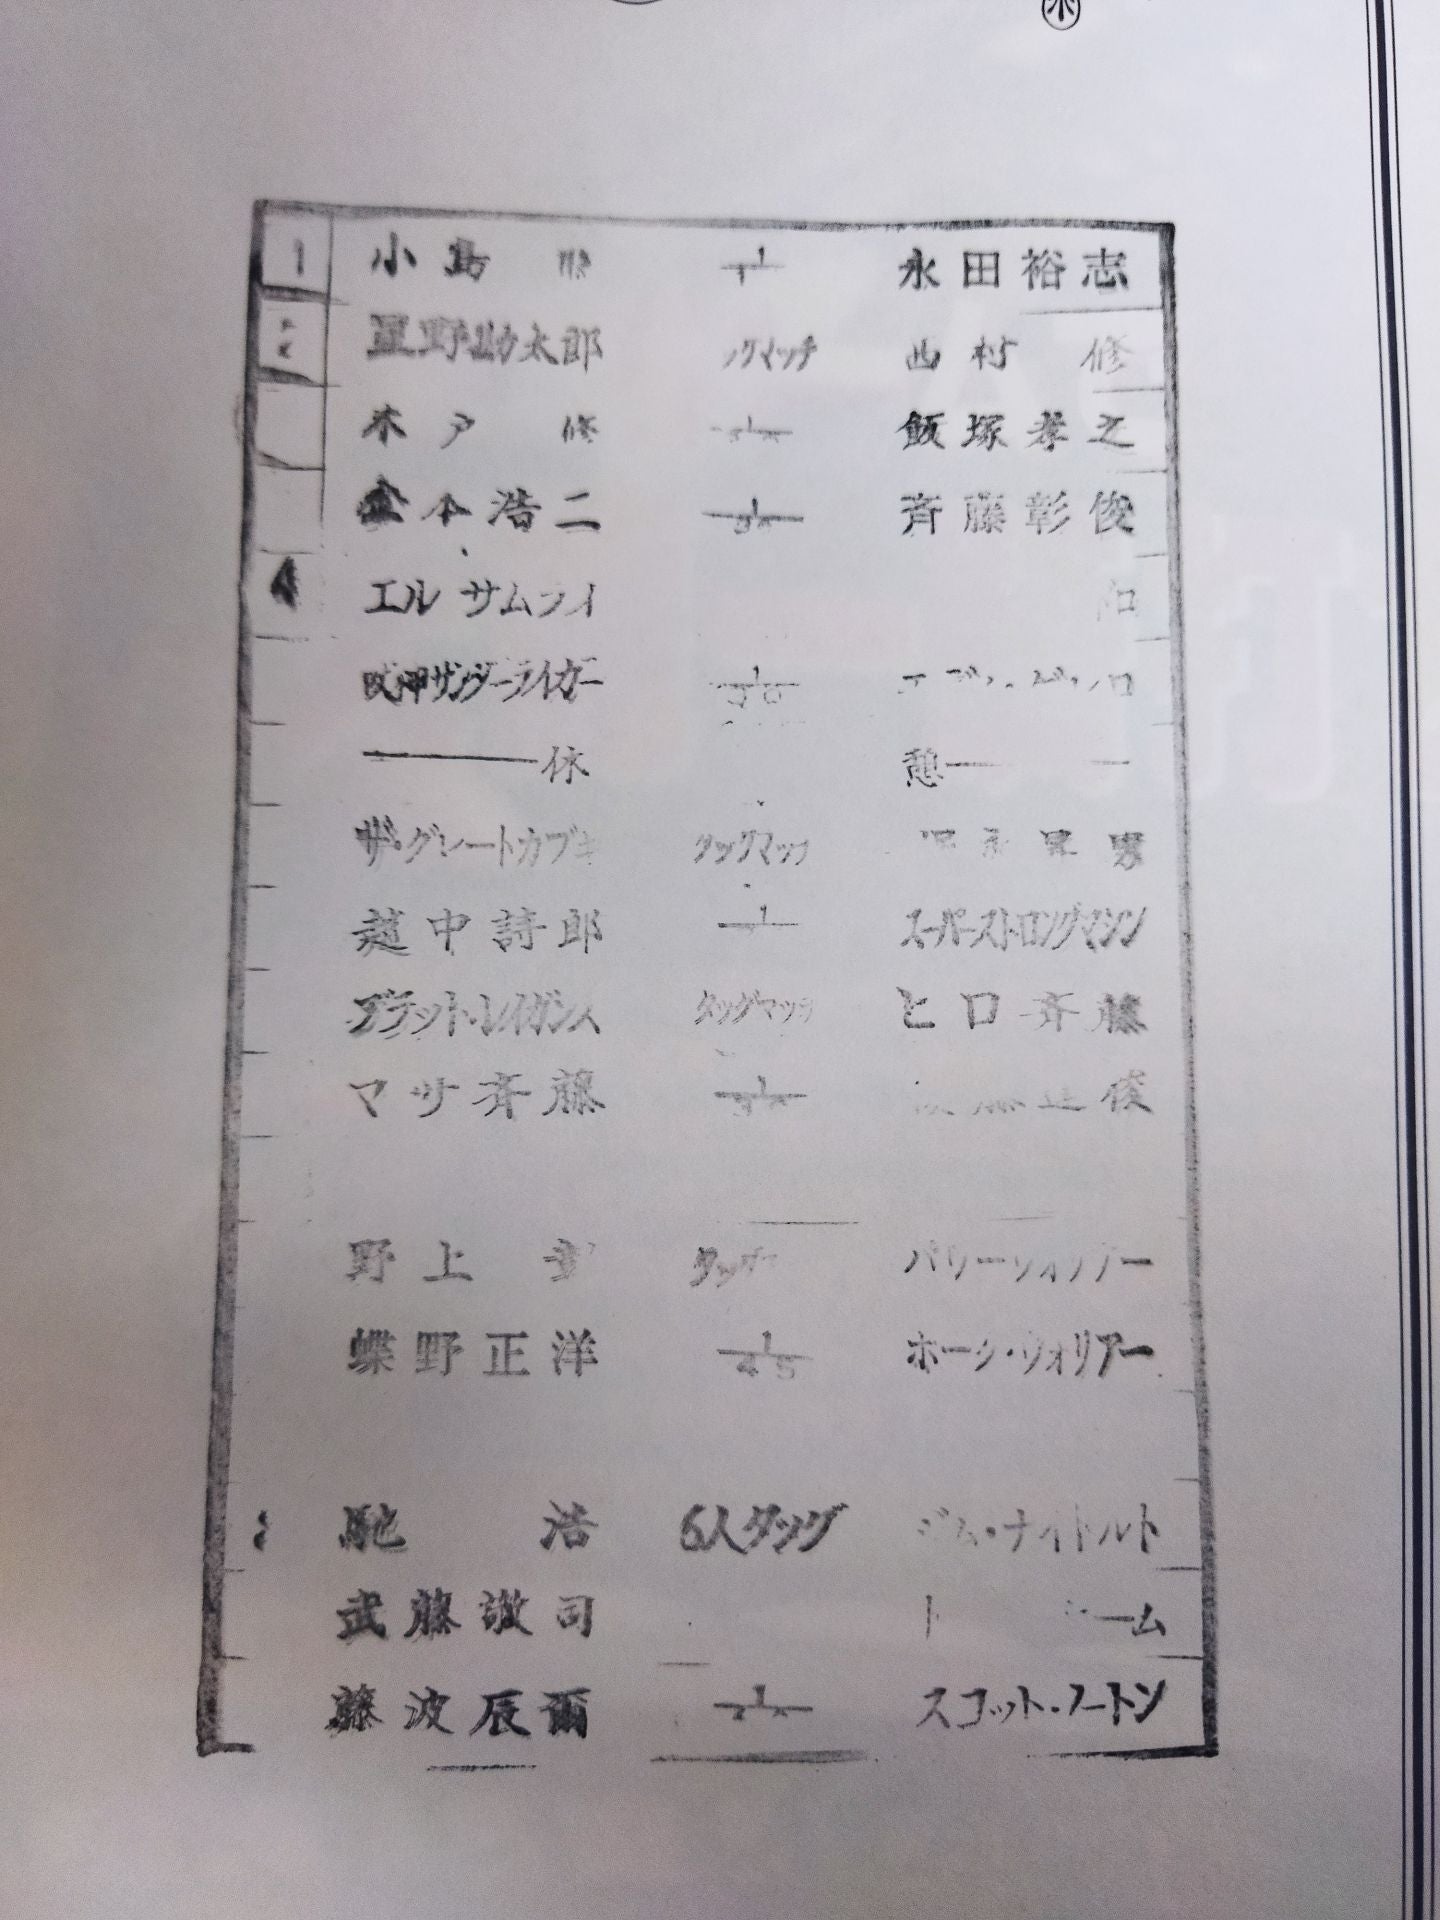 1 小島 1/1 永田裕志
星野勘太郎 グマッチ 西村修
木戸修 飯塚孝之
金本浩二 1/30 斉藤彰俊
4 エル サムライ
獣神サンダーライガー 1/30
休 憩
ザ・グレートカブキ タッグマッチ
越中詩郎 1 スーパーストロングマシン
ブラット・レイガンス タッグマッチ ヒロ斉藤
マサ斉藤 1/30 俊
野上 タッ パワーウォリアー
蝶野正洋 1/45 ホーク・ウォリアー
馳浩 6人タッグ ジム・ナイトハルト
武藤敬司 ム
藤波辰爾 1 スコット・ノートン